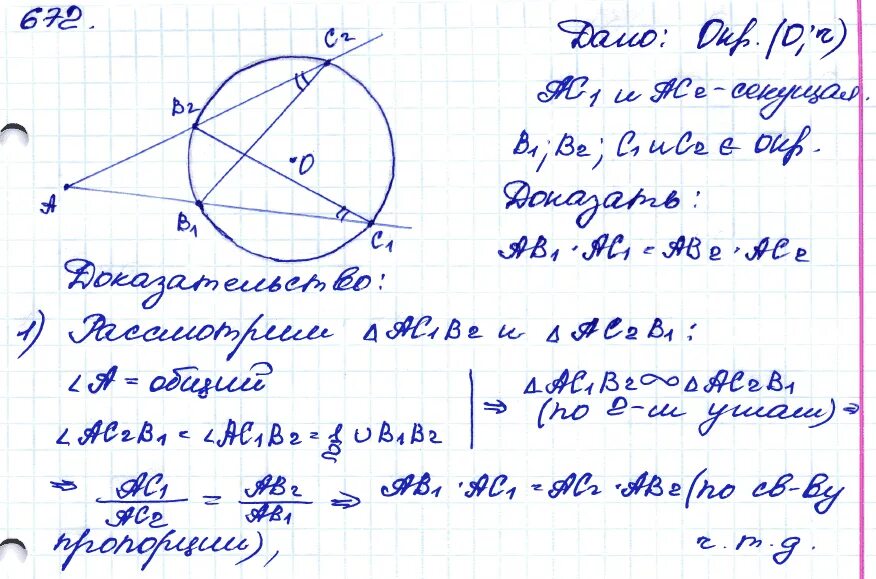 672.
C2
B2
O
A
B1
C1
Дано: Окр. (O; r)
AC1 и AC2 - секущая.
B1; B2; C1 и C2 ∈ Окр.
Доказать:
AB1 · AC1 = AB2 · AC2
Доказательство:
1) Рассмотрим △ AC1B2 и △ AC2B1:
∠A = общий
∠AC2B1 = ∠AC1B2 = 1/2 ∪ B1B2
⇒ △AC1B2 ∞ △AC2B1
(по 2-м углам) ⇒
⇒ AC1/AC2 = AB2/AB1 ⇒ AB1 · AC1 = AC2 · AB2 (по св-ву
пропорции), ч.т.д.